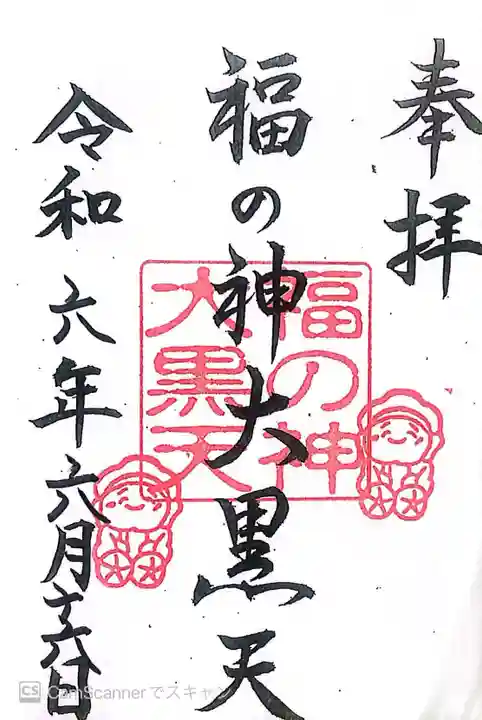 奉拝
福の神大黒天
福の神
大黒天
令和六年六月十六日
CS CamScannerでスキャン